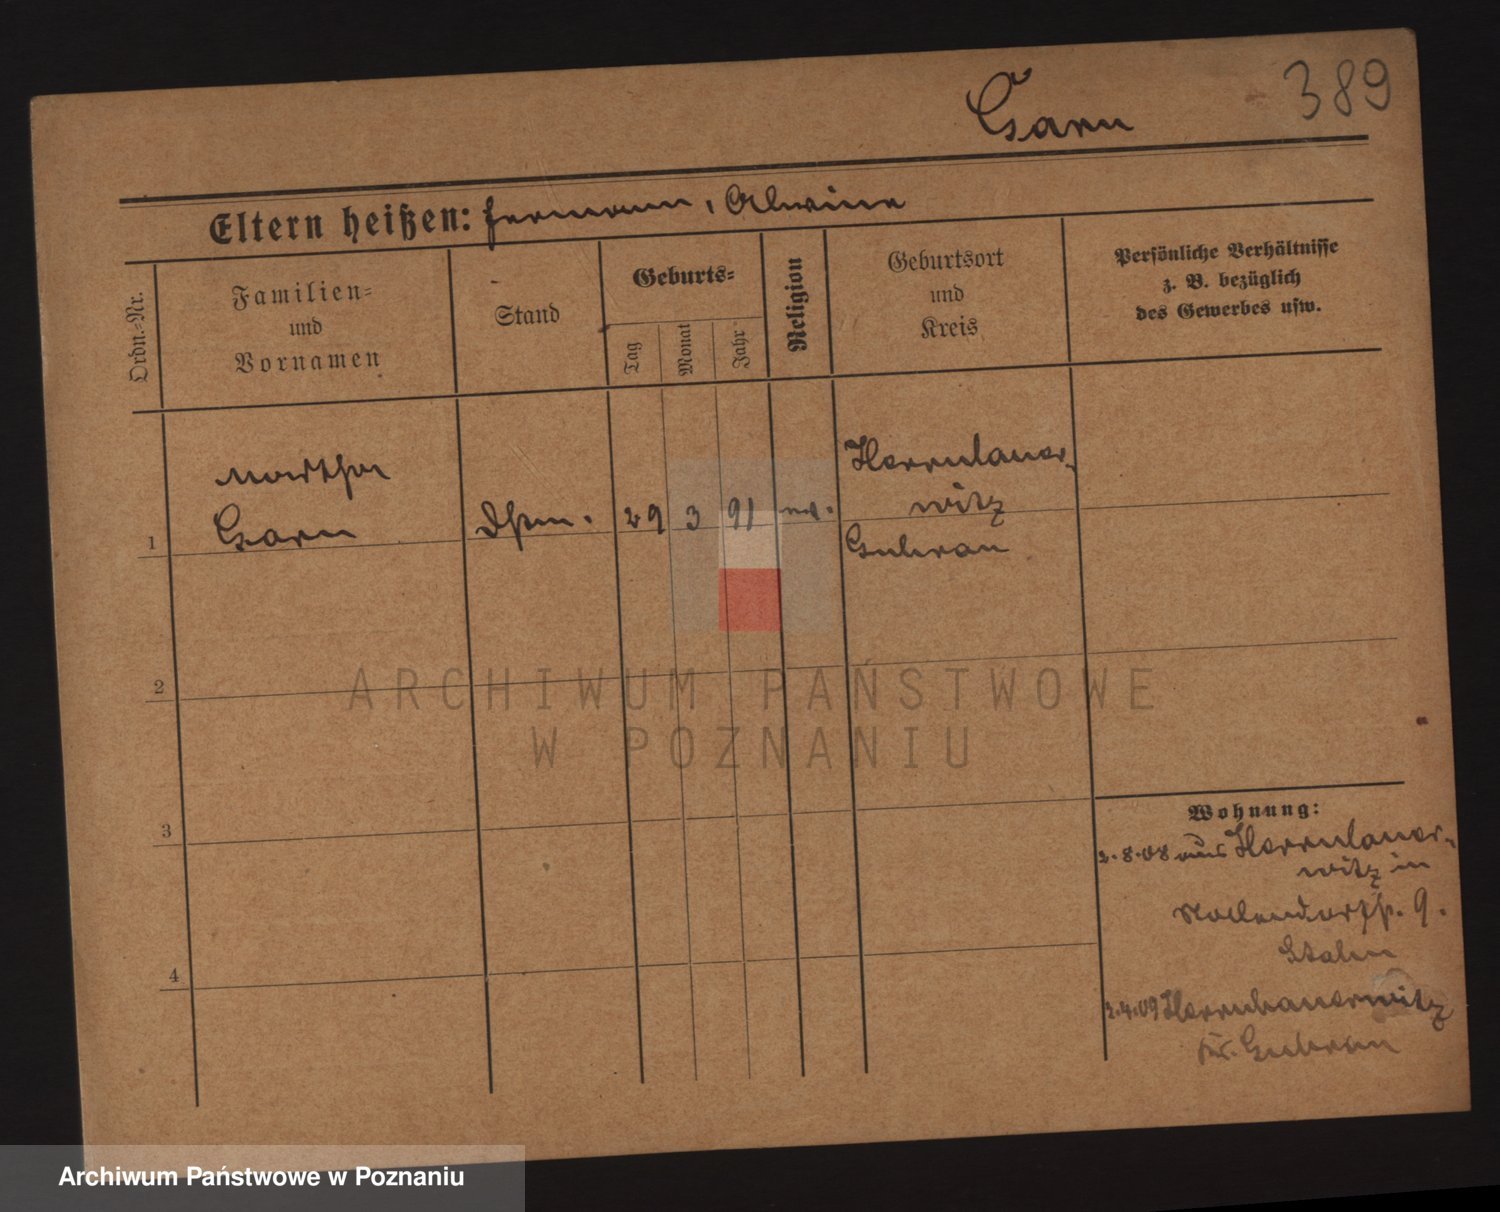 389
Garn
Eltern heißen: Hermann, Alwine
Ordn.-Nr.
Familien-
und
Vornamen
Stand
Geburts-
Tag
Monat
Jahr
Religion
Geburtsort
und
Kreis
Persönliche Verhältnisse
z. B. bezüglich
des Gewerbes usw.
Martha
Garn
1
29 3 91
Herrnlauer-
witz
Guhrau
2
3
4
Wohnung:
2.8.08 aus Herrnlauer-
witz in
9.
2.4.09 Herrnlauerwitz
Kr. Guhrau
ARCHIWUM PAŃSTWOWE
W POZNANIU
Archiwum Państwowe w Poznaniu